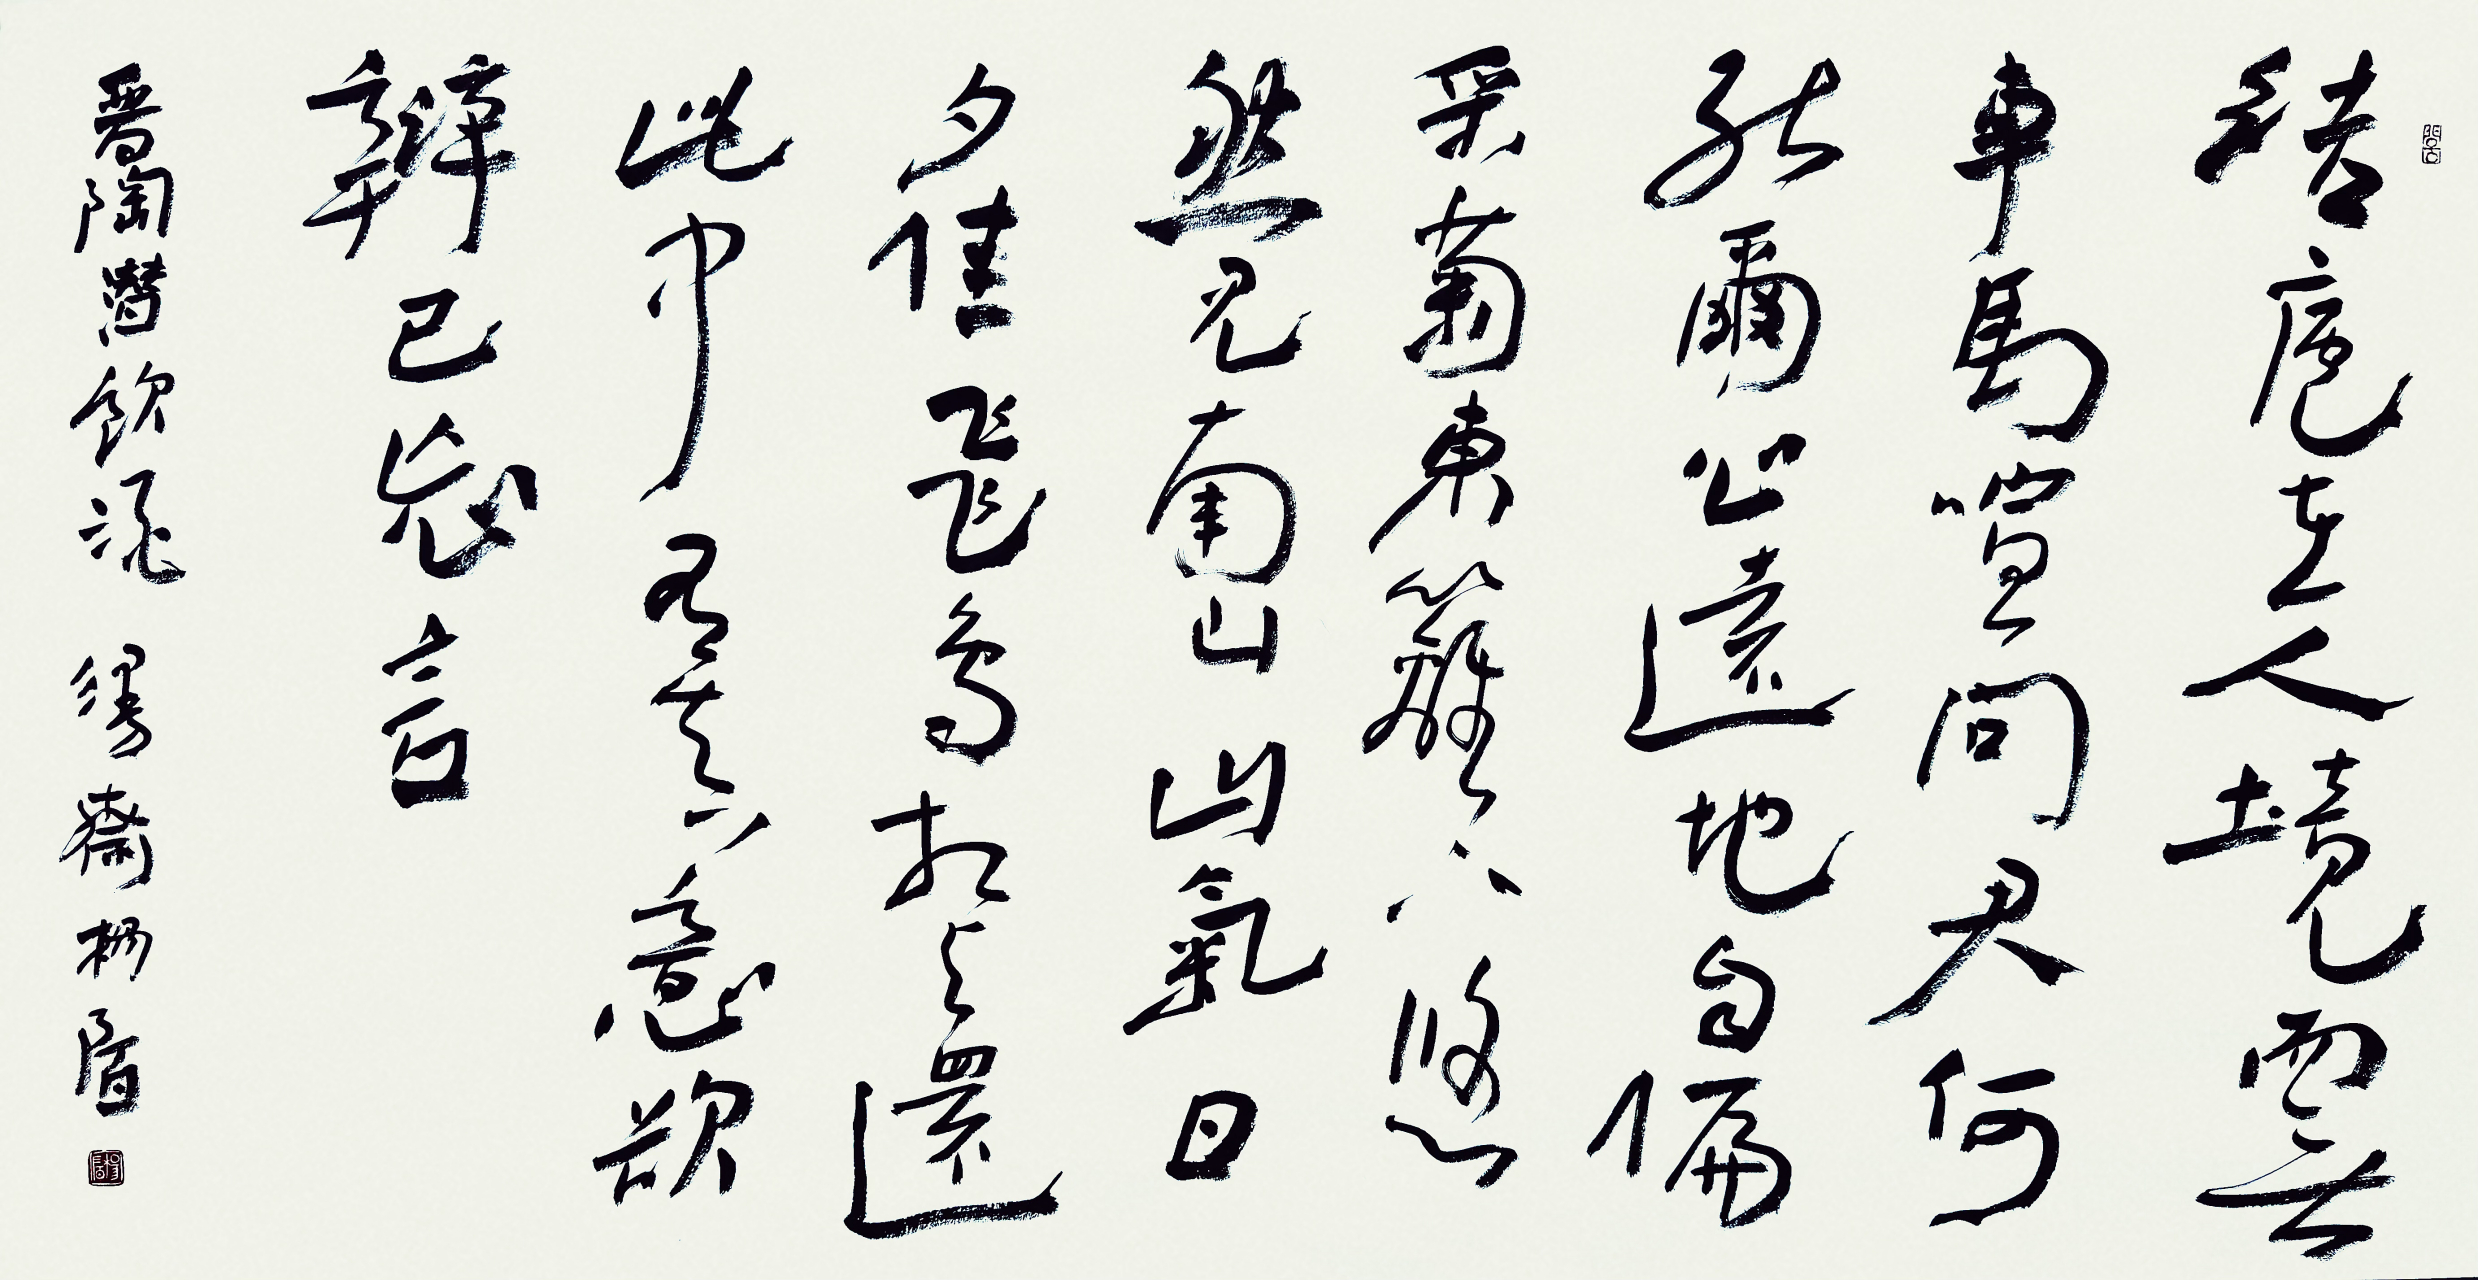 結廬在人境而無
車馬喧問君何
能爾心遠地自偏
采菊東籬下悠
然見南山山氣日
夕佳飛鳥相與還
此中有真意欲
辯已忘言
晉陶潛飲酒 齋